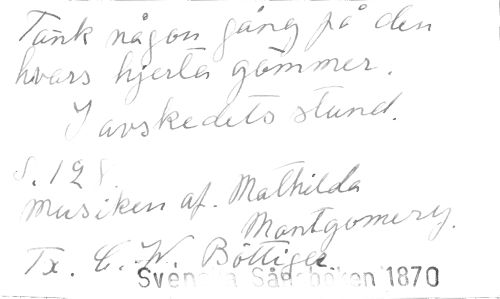 Tänk någon gång på den
hvars hjerta gömmer.
I avskedets stund.
S. 128.
Musiken af. Mathilda
Montgomery.
Tx. C. W. Böttiger
Svenska Sångboken 1870